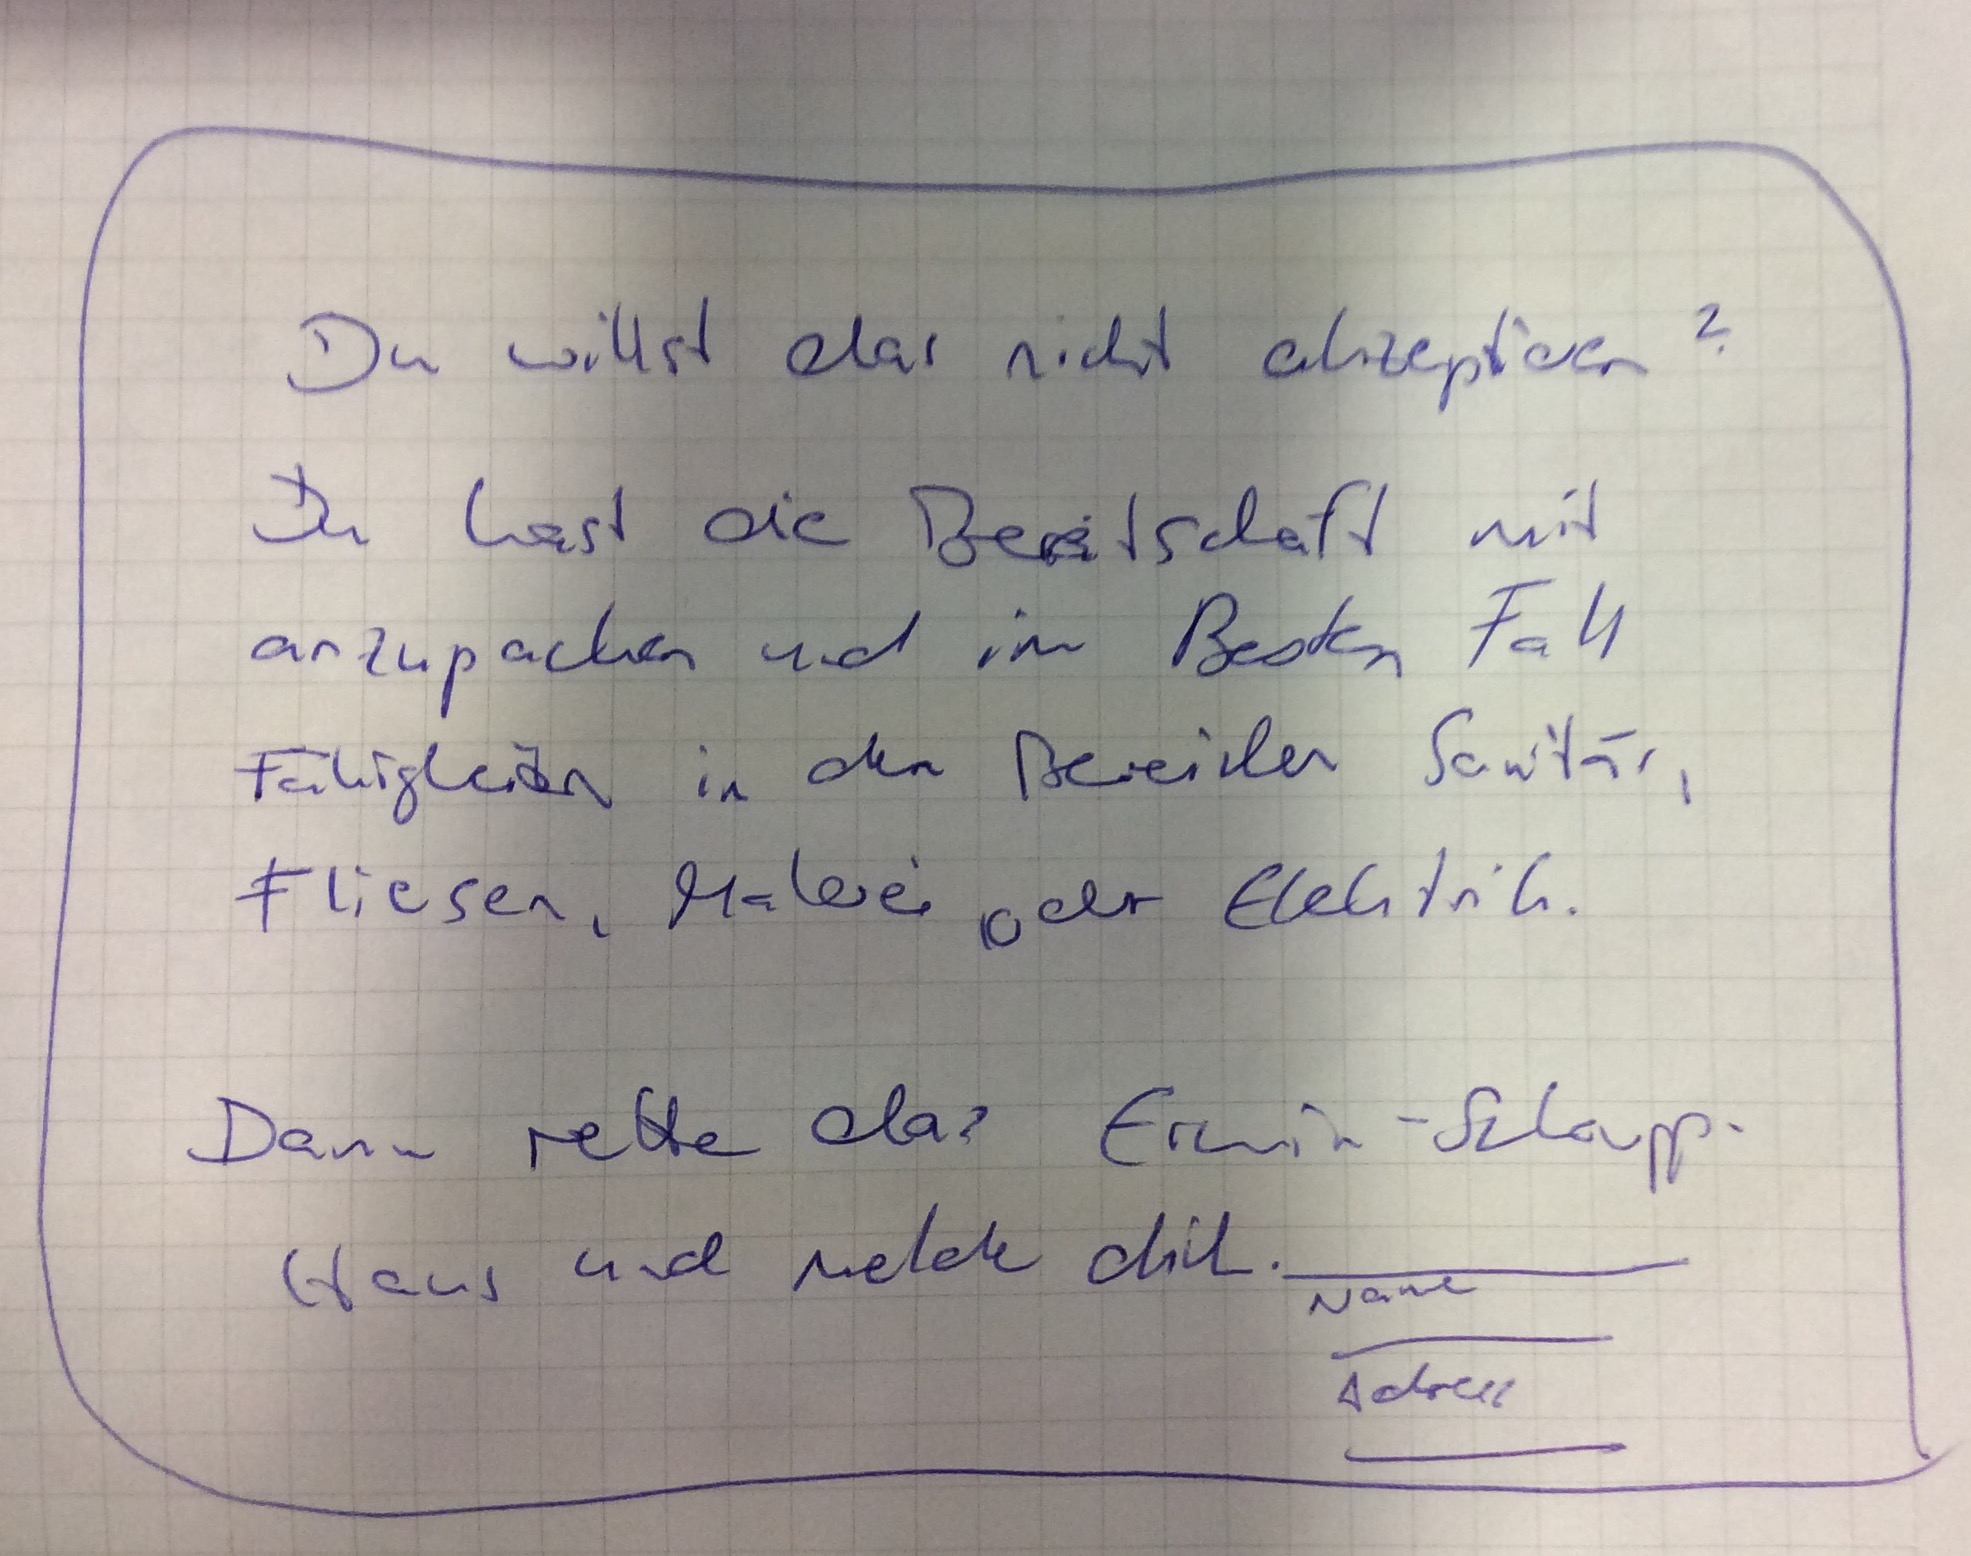 Du willst das nicht akzeptieren?
Du hast die Bereitschaft mit
anzupacken und im Besten Fall
Fähigkeiten in den Bereichen Sanitär,
Fliesen, Malerei oder Elektrik.
Dann rette das Erwin-Schopp-
Haus und melde dich.
Name
Adresse